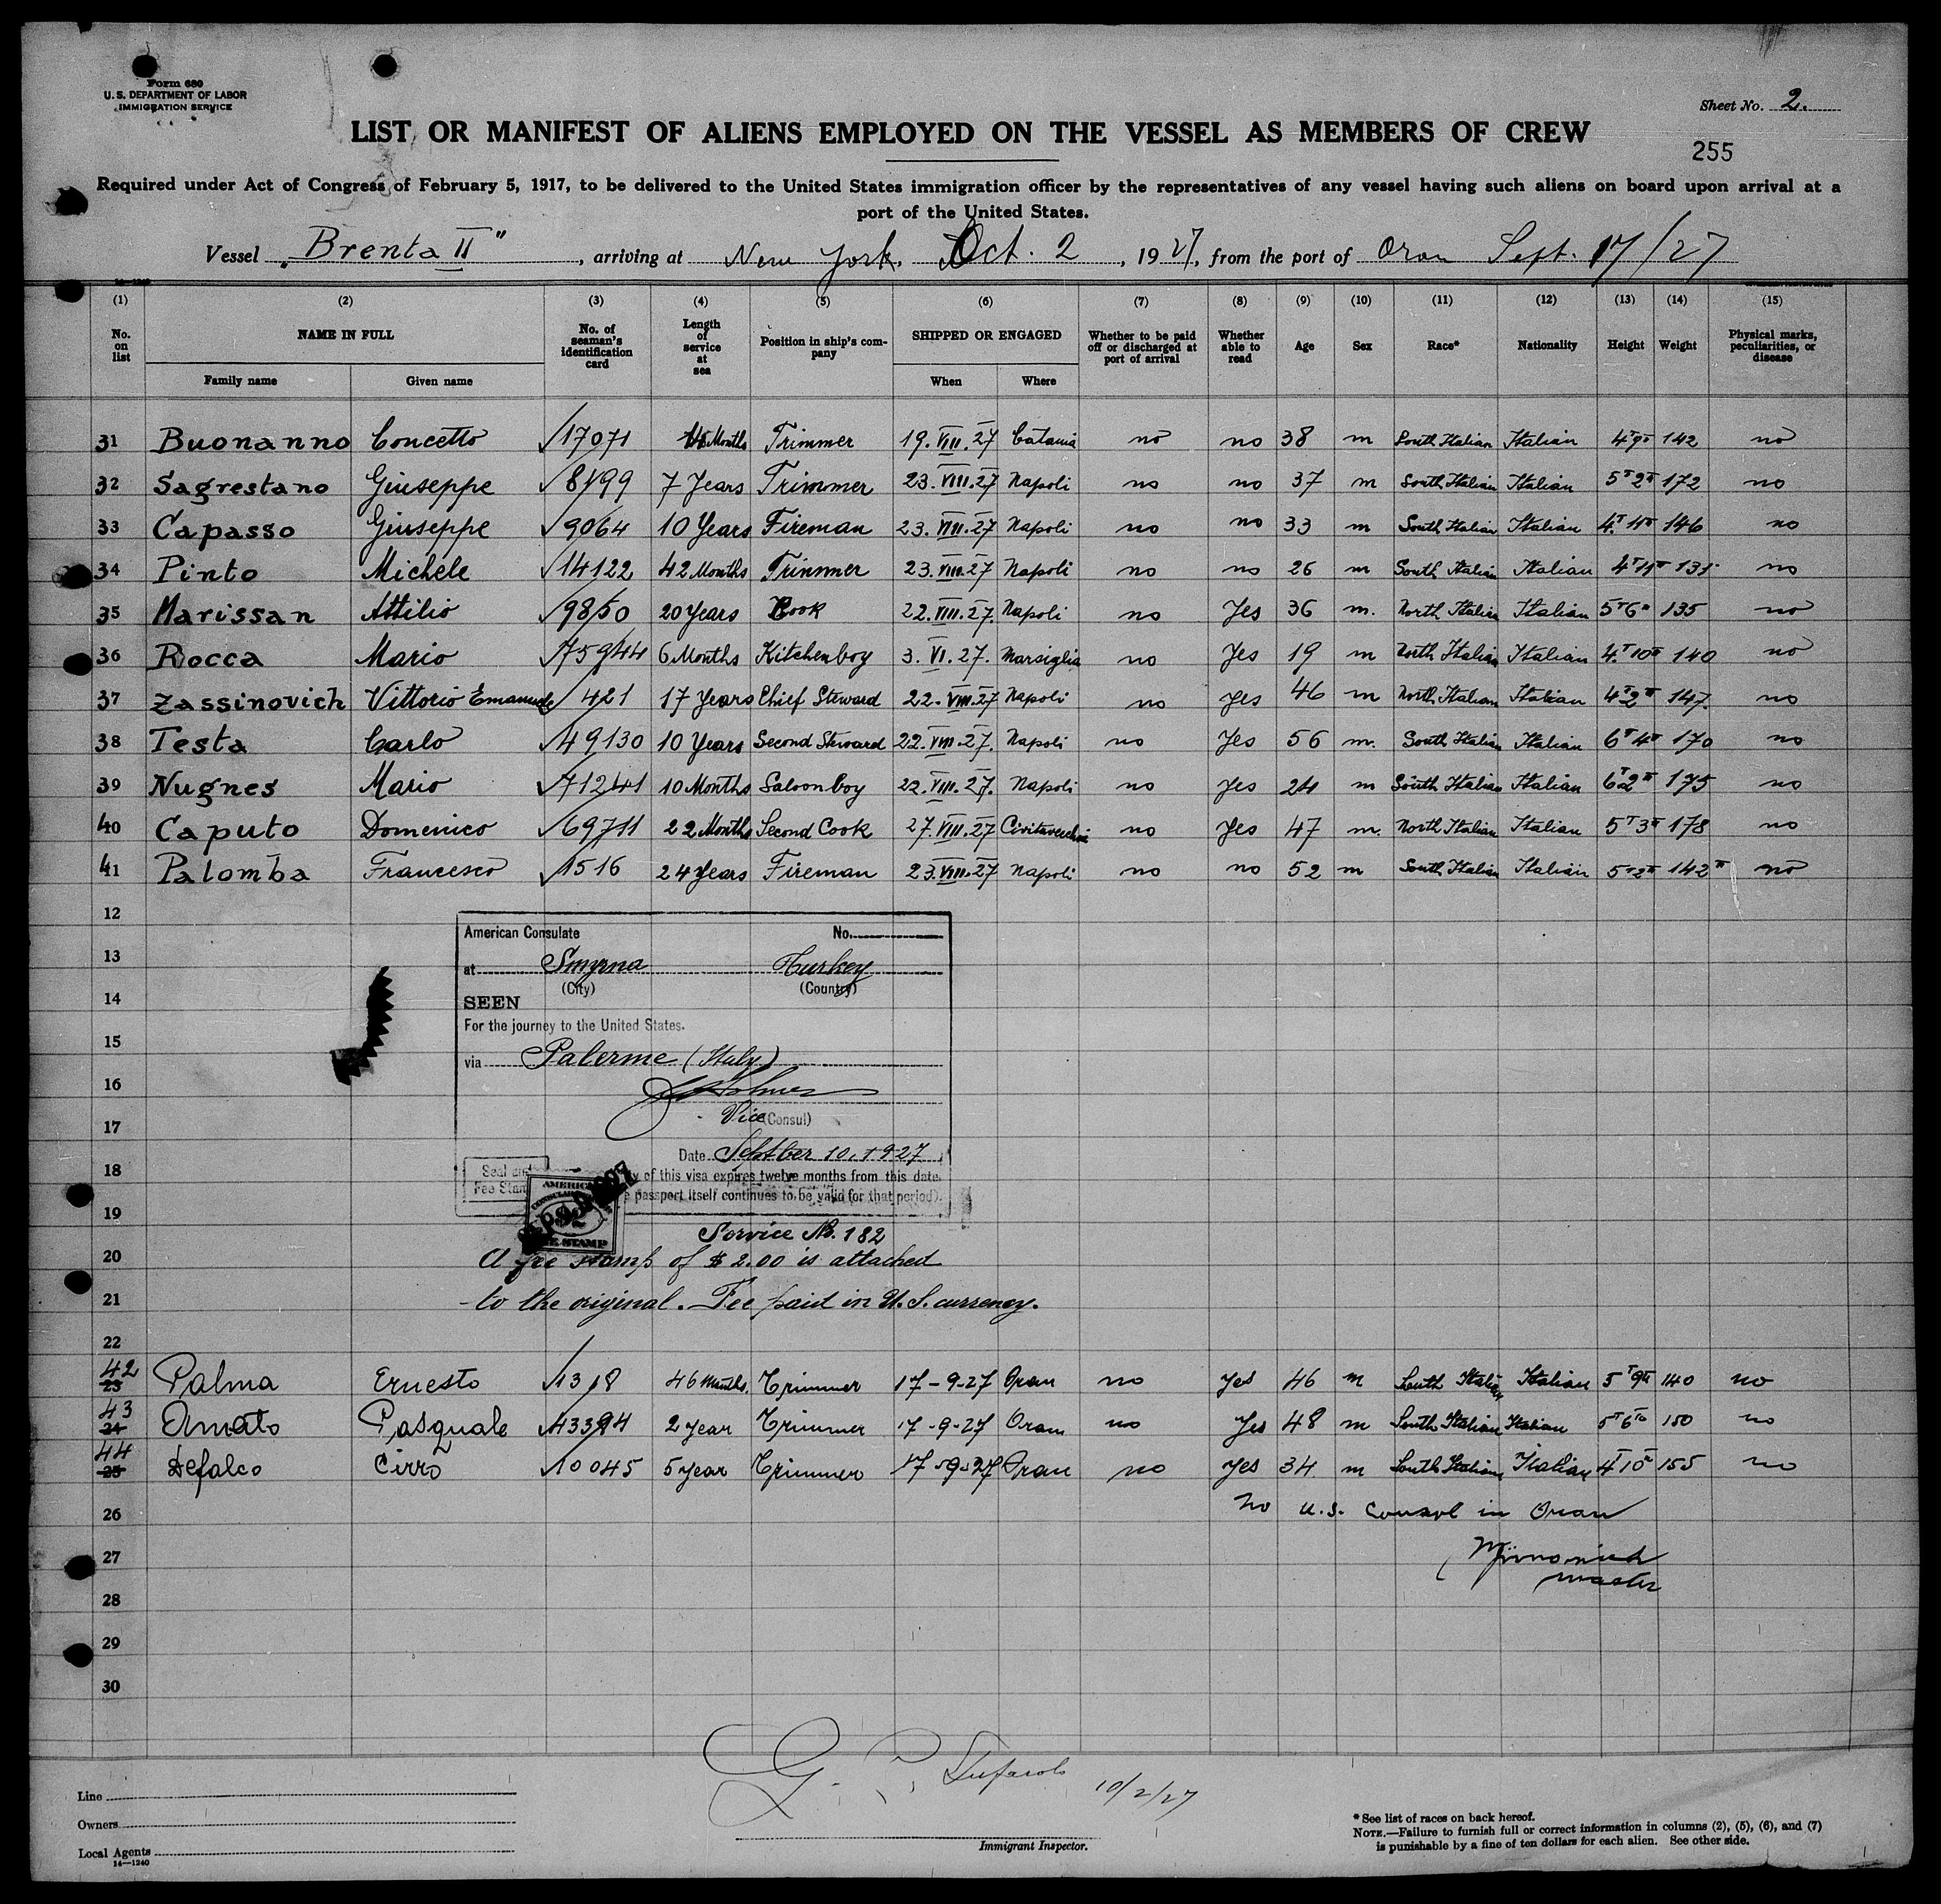 Form 680
U. S. DEPARTMENT OF LABOR
IMMIGRATION SERVICE
Sheet No. 2.
LIST OR MANIFEST OF ALIENS EMPLOYED ON THE VESSEL AS MEMBERS OF CREW
255
Required under Act of Congress of February 5, 1917, to be delivered to the United States immigration officer by the representatives of any vessel having such aliens on board upon arrival at a
port of the United States.
Vessel „Brenta II", arriving at New York, Oct. 2, 1927, from the port of Oran Sept. 17/27
(1) (2) (3) (4) (5) (6) (7) (8) (9) (10) (11) (12) (13) (14) (15)
No. on list NAME IN FULL No. of seaman's identification card Length of service at sea Position in ship's company SHIPPED OR ENGAGED Whether to be paid off or discharged at port of arrival Whether able to read Age Sex Race* Nationality Height Weight Physical marks, peculiarities, or disease
Family name Given name When Where
31 Buonanno Concetto 17071 Months Trimmer 19.VIII.27 Catania no no 38 m South Italian Italian 4 9 142 no
32 Sagrestano Giuseppe 7 Years Trimmer 23.VIII.27 Napoli no no 37 m South Italian Italian 5 2 172 no
33 Capasso Giuseppe 9064 10 Years Fireman 23.VIII.27 Napoli no no 33 m South Italian Italian 4 11 146 no
34 Pinto Michele 14122 42 Months Trimmer 23.VIII.27 Napoli no no 26 m South Italian Italian 4 11 no
35 Marissan Attilio 9850 20 Years Cook 22.VIII.27. Napoli no Yes 36 m. North Italian Italian 5 6 135 no
36 Rocca Mario 75944 6 Months Kitchenboy 3. VI. 27. Marsiglia no Yes 19 m North Italian Italian 4 10 140 no
37 Zassinovich Vittorio Emanuele 421 17 Years Chief Steward 22.VIII.27 Napoli no Yes 46 m North Italian Italian 4 2 147. no
38 Testa Carlo 49130 10 Years Second Steward 22.VIII.27. Napoli no Yes 56 m. South Italian Italian 6 4 170 no
39 Nugnes Mario 71241 10 Months Saloonboy 22.VIII.27. Napoli no Yes 24 m South Italian Italian 6 2 175 no
40 Caputo Domenico 69711 22 Months Second Cook 27.VIII.27 Civitavecchia no Yes 47 m. North Italian Italian 5 3 178 no
41 Palomba Francesco 1516 24 Years Fireman 23.VIII.27 Napoli no no 52 m South Italian Italian 5 2 142 no
12
American Consulate No.
13
at Smyrna Turkey
(City) (Country)
14
SEEN
For the journey to the United States.
15
via Palerme (Italy)
16
Vice (Consul)
17
Date Septber 10. 1927
18
Seal and
Fee Stamp
y of this visa expires twelve months from this date.
passport itself continues to be valid for that period).
19
AMERICAN
FEE STAMP
Service No. 182
20
A fee stamp of $ 2.00 is attached
21
to the original. Fee paid in U. S. currency.
22
42 23 Palma Ernesto 1318 46 Months. Trimmer 17-9-27 Oran no Yes 46 m South Italian Italian 5 9 140 no
43 24 Amato Pasquale 43394 2 year Trimmer 17-9-27 Oran no Yes 48 m South Italian Italian 5 6 150 no
44 25 Defalco Cirro 10045 5 year Trimmer 17-9-27 Oran no Yes 34 m South Italian Italian 4 10 155 no
26 No U.S. Consul in Oran
27
master
28
29
30
G. P. 10/2/27
Line
Owners
Local Agents
14—1240
Immigrant Inspector.
* See list of races on back hereof.
NOTE.—Failure to furnish full or correct information in columns (2), (5), (6), and (7)
is punishable by a fine of ten dollars for each alien. See other side.